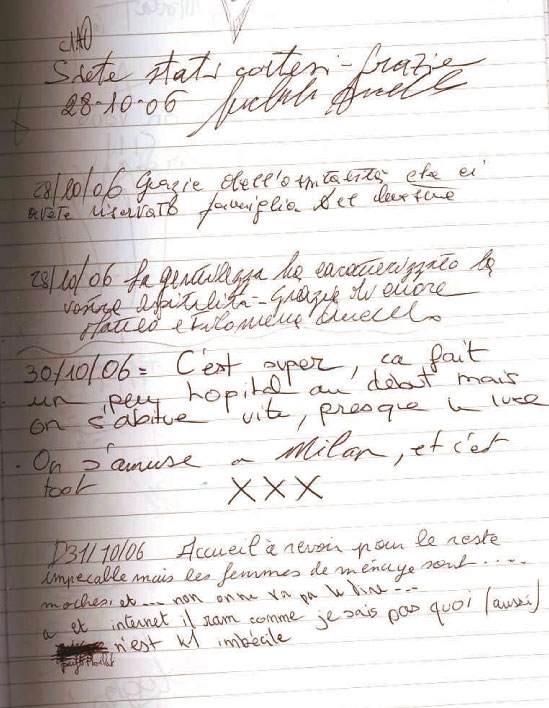 CIAO
Siete stati cortesi - Grazie
28-10-06
28/10/06 Grazie dell'ospitalità che ci
avete riservato famiglia
28/10/06 La gentilezza ha caratterizzato la
vostra ospitalità - Grazie di cuore
Matteo e Filomena
30/10/06 = C'est super, ca fait
un peu hopital au début mais
on s'abitue vite, presque le luxe
. On s'amuse a Milan, et c'est
tout XXX
D31/10/06 Accueil à revoir pour le reste
impecable mais les femmes de ménage sont .....
moches et ... non on ne va pa le dire ...
a et internet il ram comme je sais pas quoi (aussi)
n'est k1 imbécile